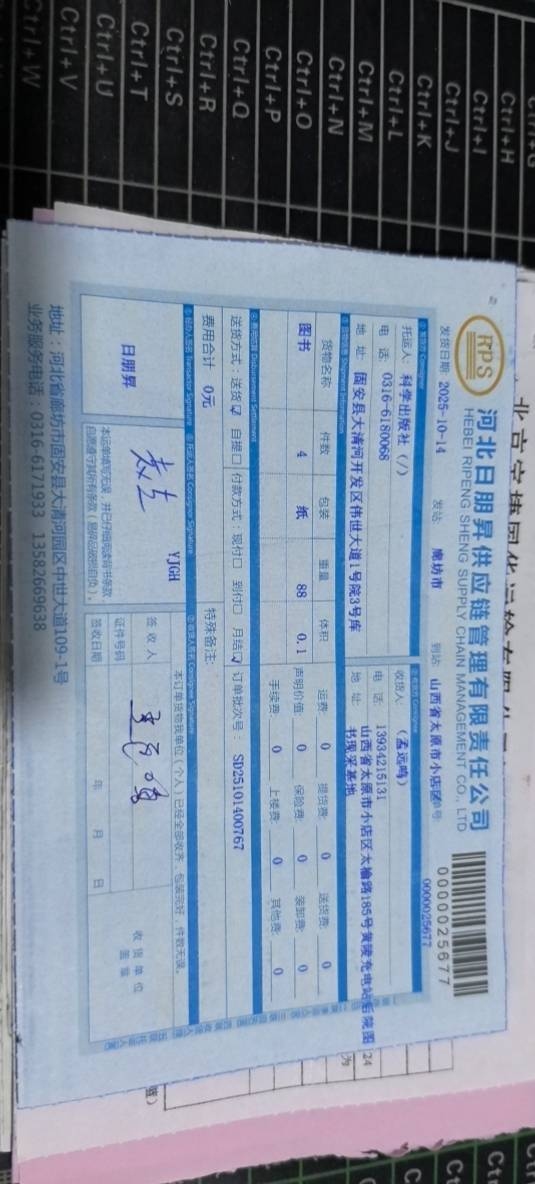 Ctrl+H
Ctrl+I
Ctrl+J
Ctrl+K
Ctrl+L
Ctrl+M
Ctrl+N
Ctrl+O
Ctrl+P
Ctrl+Q
Ctrl+R
Ctrl+S
Ctrl+T
Ctrl+U
Ctrl+V
Ctrl+W
RPS
河北日朋昇供应链管理有限责任公司
HEBEI RIPENG SHENG SUPPLY CHAIN MANAGEMENT CO., LTD
0000025677
发货日期: 2025-10-14 发站: 廊坊市 到站: 山西省太原市小店区 号: 0000025677
托运人: 科学出版社 (/)
电 话: 0316-6180068
地 址: 固安县大清河开发区伟世大道1号院3号库
收货人: (孟远鸣)
电 话: 13934215131
地 址: 山西省太原市小店区太榆路185号黄陵充电站后院图
书现采基地
货物名称 件数 包装 重量 体积
图书 4 纸 88 0.1
运费: 0 提货费: 0 送货费: 0
声明价值: 0 保险费: 0 装卸费: 0
手续费: 0 上楼费: 0 其他费: 0
送货方式: 送货☑ 自提□ 付款方式: 现付□ 到付□ 月结☑ 订单批次号: SD25101400767
费用合计 0元
特殊备注:
日朋昇
YJGH
本运单填写无误,并已仔细阅读背书条款,
本订单货物我单位(个人)已经全部收齐,包装完好,件数无误。
签收人
证件号码
签收日期 年 月 日
收货单位
盖章
地址:河北省廊坊市固安县大清河园区中世大道109-1号
业务服务电话:0316-6171933 13582669638